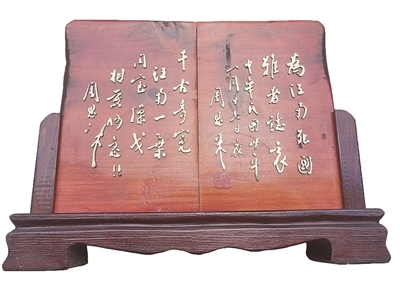 为江南死国
难者志哀
中华民国卅年
一月十七日夜
周恩来
千古奇冤
江南一叶
同室操戈
相煎何急
周恩来